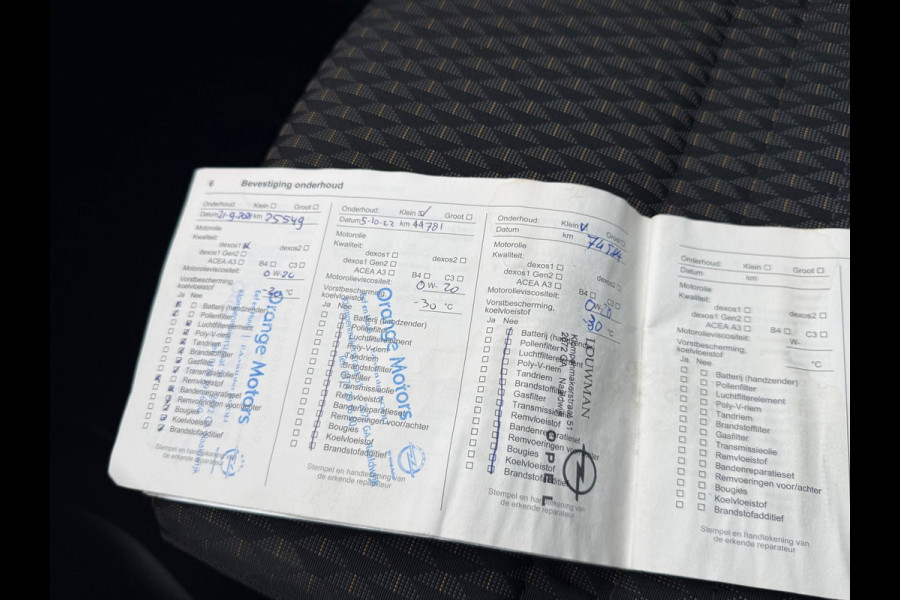 6 Bevestiging onderhoud
Onderhoud: Klein Groot
Datum 21-9-2021 km 25549
Motorolie
Kwaliteit:
dexos1 dexos2
dexos1 Gen2
ACEA A3 B4 C3
Motorolieviscositeit: 0 W-20
Vorstbescherming,
koelvloeistof -30 °C
Ja Nee
Batterij (handzender)
Pollenfilter
Luchtfilterelement
Poly-V-riem
Tandriem
Brandstoffilter
Gasfilter
Transmissieolie
Remvloeistof
Bandenreparatieset
Remvoeringen voor/achter
Bougies
Koelvloeistof
Brandstofadditief
Stempel en handtekening van
de erkende reparateur
Orange Motors
Onderhoud: Klein Groot
Datum 5-10-22 km 44781
Motorolie
Kwaliteit:
dexos1 dexos2
dexos1 Gen2
ACEA A3 B4 C3
Motorolieviscositeit: 0 W- 20
Vorstbescherming,
koelvloeistof -30 °C
Ja Nee
Batterij (handzender)
Pollenfilter
Luchtfilterelement
Poly-V-riem
Tandriem
Brandstoffilter
Gasfilter
Transmissieolie
Remvloeistof
Bandenreparatieset
Remvoeringen voor/achter
Bougies
Koelvloeistof
Brandstofadditief
Stempel en handtekening van
de erkende reparateur
Orange Motors
Onderhoud: Klein Groot
Datum km
Motorolie
Kwaliteit:
dexos1 dexos2
dexos1 Gen2
ACEA A3 B4 C3
Motorolieviscositeit: 0W-20
Vorstbescherming,
koelvloeistof -30 °C
Ja Nee
Batterij (handzender)
Pollenfilter
Luchtfilterelement
Poly-V-riem
Tandriem
Brandstoffilter
Gasfilter
Transmissieolie
Remvloeistof
Bandenreparatieset
Remvoeringen voor/achter
Bougies
Koelvloeistof
Brandstofadditief
Stempel en handtekening van
de erkende reparateur
LOUWMAN
OPEL
Onderhoud: Klein Groot
Datum km
Motorolie
Kwaliteit:
dexos1 dexos2
dexos1 Gen2
ACEA A3 B4 C3
Motorolieviscositeit: W-
Vorstbescherming,
koelvloeistof °C
Ja Nee
Batterij (handzender)
Pollenfilter
Luchtfilterelement
Poly-V-riem
Tandriem
Brandstoffilter
Gasfilter
Transmissieolie
Remvloeistof
Bandenreparatieset
Remvoeringen voor/achter
Bougies
Koelvloeistof
Brandstofadditief
Stempel en handtekening van
de erkende reparateur